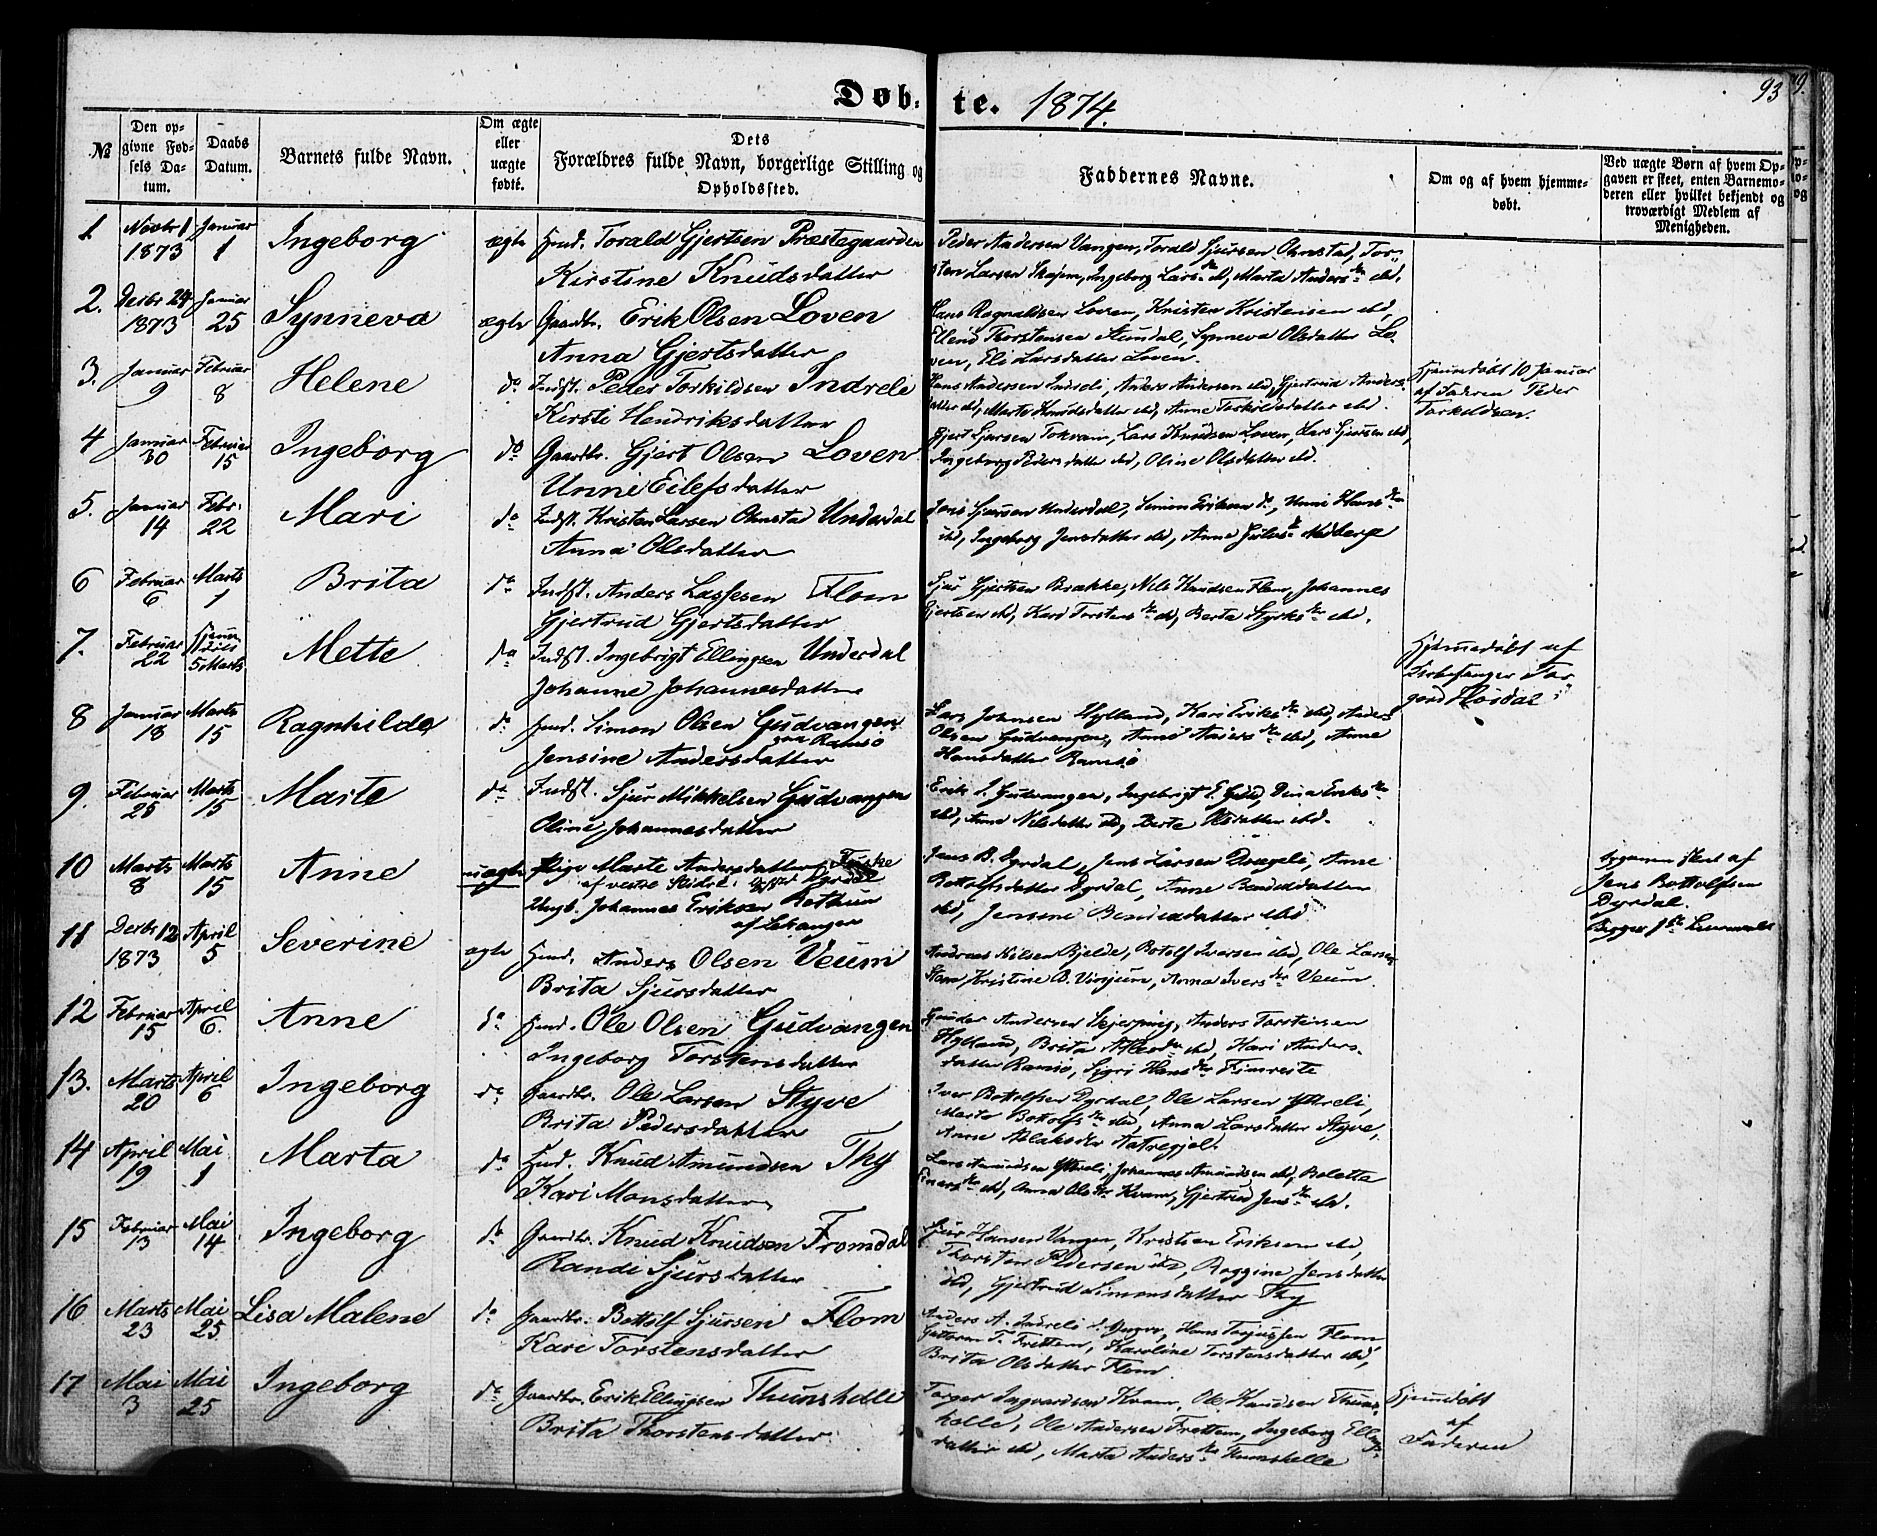 Døb-te. 1874.
93
№
Den opgivne Fødsels Datum.
Daabs Datum.
Barnets fulde Navn.
Om ægte eller uægte født.
Dets Forældres fulde Navn, borgerlige Stilling og Opholdssted.
Faddernes Navne.
Om og af hvem hjemmedøbt.
Ved uægte Børn af hvem Opgaven er skeet, enten Barnemoderen eller hvilket bekjendt og troværdigt Medlem af Menigheden.
1 Novbr 1 1873 Januar 1 Ingeborg ægte Hmd. Torald Gjertsen Præstegaarden
Kirstine Knudsdatter
Peder Andersen Vangen, Torald Sjursen Ohnstad, Tor-
sten Larsen Skajem, Ingeborg Larsdr ibd, Marta Andersdr ibd.
2. Decbr 24 1873 Januar 25 Synneva ægte Gaardbr. Erik Olsen Loven
Anna Gjertsdatter
Hans Ragnaldsen Loven, Kristen Kristensen ibd,
Thorstensen Aundal, Synneva Olsdatter Lo-
ven, Eli Larsdatter Loven.
3. Januar 9 Februar 8 Helene do Indst. Peder Torkildsen Indreli
Kirsti Hendriksdatter
Hans Andersen Indreli, Anders Andersen ibd, Gjertrud Anders-
datter ibd, Marte Knudsdatter ibd, Anne Torkildsdatter ibd.
Hjemmedøbt 10 Januar
af Faderen Peder
Torkildsen.
4 Januar 30 Februar 15 Ingeborg do Gaardbr. Gjert Olsen Loven
Unni Eilefsdatter
Gjert Sjursen Tokvam, Lars Knudsen Loven, Lars Sjursen ibd,
Ingeborg Pedersdatter ibd, Oline Olsdatter ibd.
5. Januar 14 Febr. 22 Mari do Indst. Kristen Larsen Ohnstad Underdal
Anna Olsdatter
Jens Sjursen Underdal, Simon Eriksen do, Unni Hansdr
ibd, Ingeborg Jensdatter ibd, Anne
6 Februar 6 Marts 1 Brita do Indst. Anders Lassesen Flom
Gjertrud Gjertsdatter
Sjur Gjertsen Brække, Nils Knudsen Flom, Johannes
Gjertsen ibd, Kari Torstensdr ibd, Berta Styrksdr ibd.
7. Februar 22 5 Marts Mette do Indst. Ingebrigt Ellingsen Underdal
Johanne Johannesdatter
Hjemmedøbt af
Kirkesanger Tor-
gerd Høsdal
8 Januar 18 Marts 15 Ragnhilde do Hmd. Simon Olsen Gudvangen
Ramsø
Jensine Andersdatter
Lars Johnsen Hylland, Kari Eriksdr ibd, Anders
Olsen Gudvangen, Anne Andersdr ibd, Anne
Hansdatter Ramsø
9. Februar 25 Marts 15 Marte do Indst. Sjur Mikkelsen Gudvangen
Oline Johannesdatter
Erik S. Gudvangen, Ingebrigt E. Eriksdr
ibd, Anne Nilsdatter ibd, Berte Olsdatter ibd.
10 Marts 8 Marts 15 Anne uægte Pige Marte Andersdatter
af vestre Slidre. Dyrdal
Ungk. Johannes Eriksen Rothun
af Lekanger
Jens B. Dyrdal, Jens Larsen Drægeli, Anne
Bottolfsdatter Dyrdal, Anne Bendiksdatter
ibd, Jensine Bendiksdatter ibd
Opgaven skeet af
Jens Bottolfsen
Dyrdal.
11 Decbr 12 1873 April 5 Severine ægte Hmd. Anders Olsen Veum
Brita Sjursdatter
Andreas Nilsen Bjelde, Botolf Iversen ibd, Ole Larsen
Kristine B. Vinjum, Anna Iversdr Veum.
12 Februar 15 April 6. Anne do Hmd. Ole Olsen Gudvangen
Ingeborg Torstensdatter
Gunder Andersen Skjerping, Anders Torstensen
Hylland, Brita ibd, Kari Anders-
datter Ramsø, Sigri Hansdr Fimreite
13. Marts 20 April 6 Ingeborg do Gaardbr. Ole Larsen Styve
Brita Pedersdatter
Iver Bottolfsen Dyrdal, Ole Larsen Ytreli,
Marte Bottolfsdr ibd, Anna Larsdatter Styve,
Anne Aslaksdr
14 April 19 Mai 1 Marta do Hmd. Knud Amundsen Thy
Kari Monsdatter
Lars Amundsen Ytreli, Johannes Amundsen ibd, Boletta
ibd, Anna Olsdr Kvam, Gjertrud Jensdr ibd.
15 Februar 13 Mai 14 Ingeborg do Gaardbr. Knud Knudsen Fromdal
Randi Sjursdatter
Sjur Hansen Vangen, Kristian Eriksen ibd,
Thorsten Pedersen ibd, Raggine Jensdatter
ibd, Gjertrud Simonsdatter Thy
16 Marts 23 Mai 25 Lisa Malene do Gaardbr. Bottolf Sjursen Flom
Kari Torstensdatter
Anders A. Indreli, Hans Flom,
Guttorm T. Frettem, Karoline Torstensdatter ibd,
Brita Olsdatter Flom
17 Mai 3 Mai 25 Ingeborg do Gaardbr. Erik Ellingsen Thunshelle
Brita Thorstensdatter
Torger Ingvardsen Kvam, Ole Knudsen Thuns-
helle, Ole Andersen Frettem, Ingeborg Ellings-
datter ibd, Marta Andersdr Thunshelle
Hjemmedøbt
af
Faderen